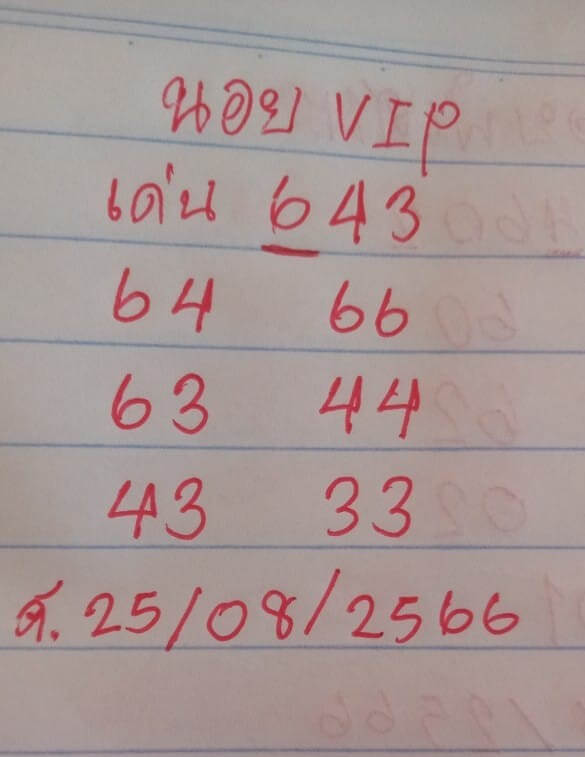 นอย VIP
เด่น 643
64 66
63 44
43 33
ศ. 25/08/2566